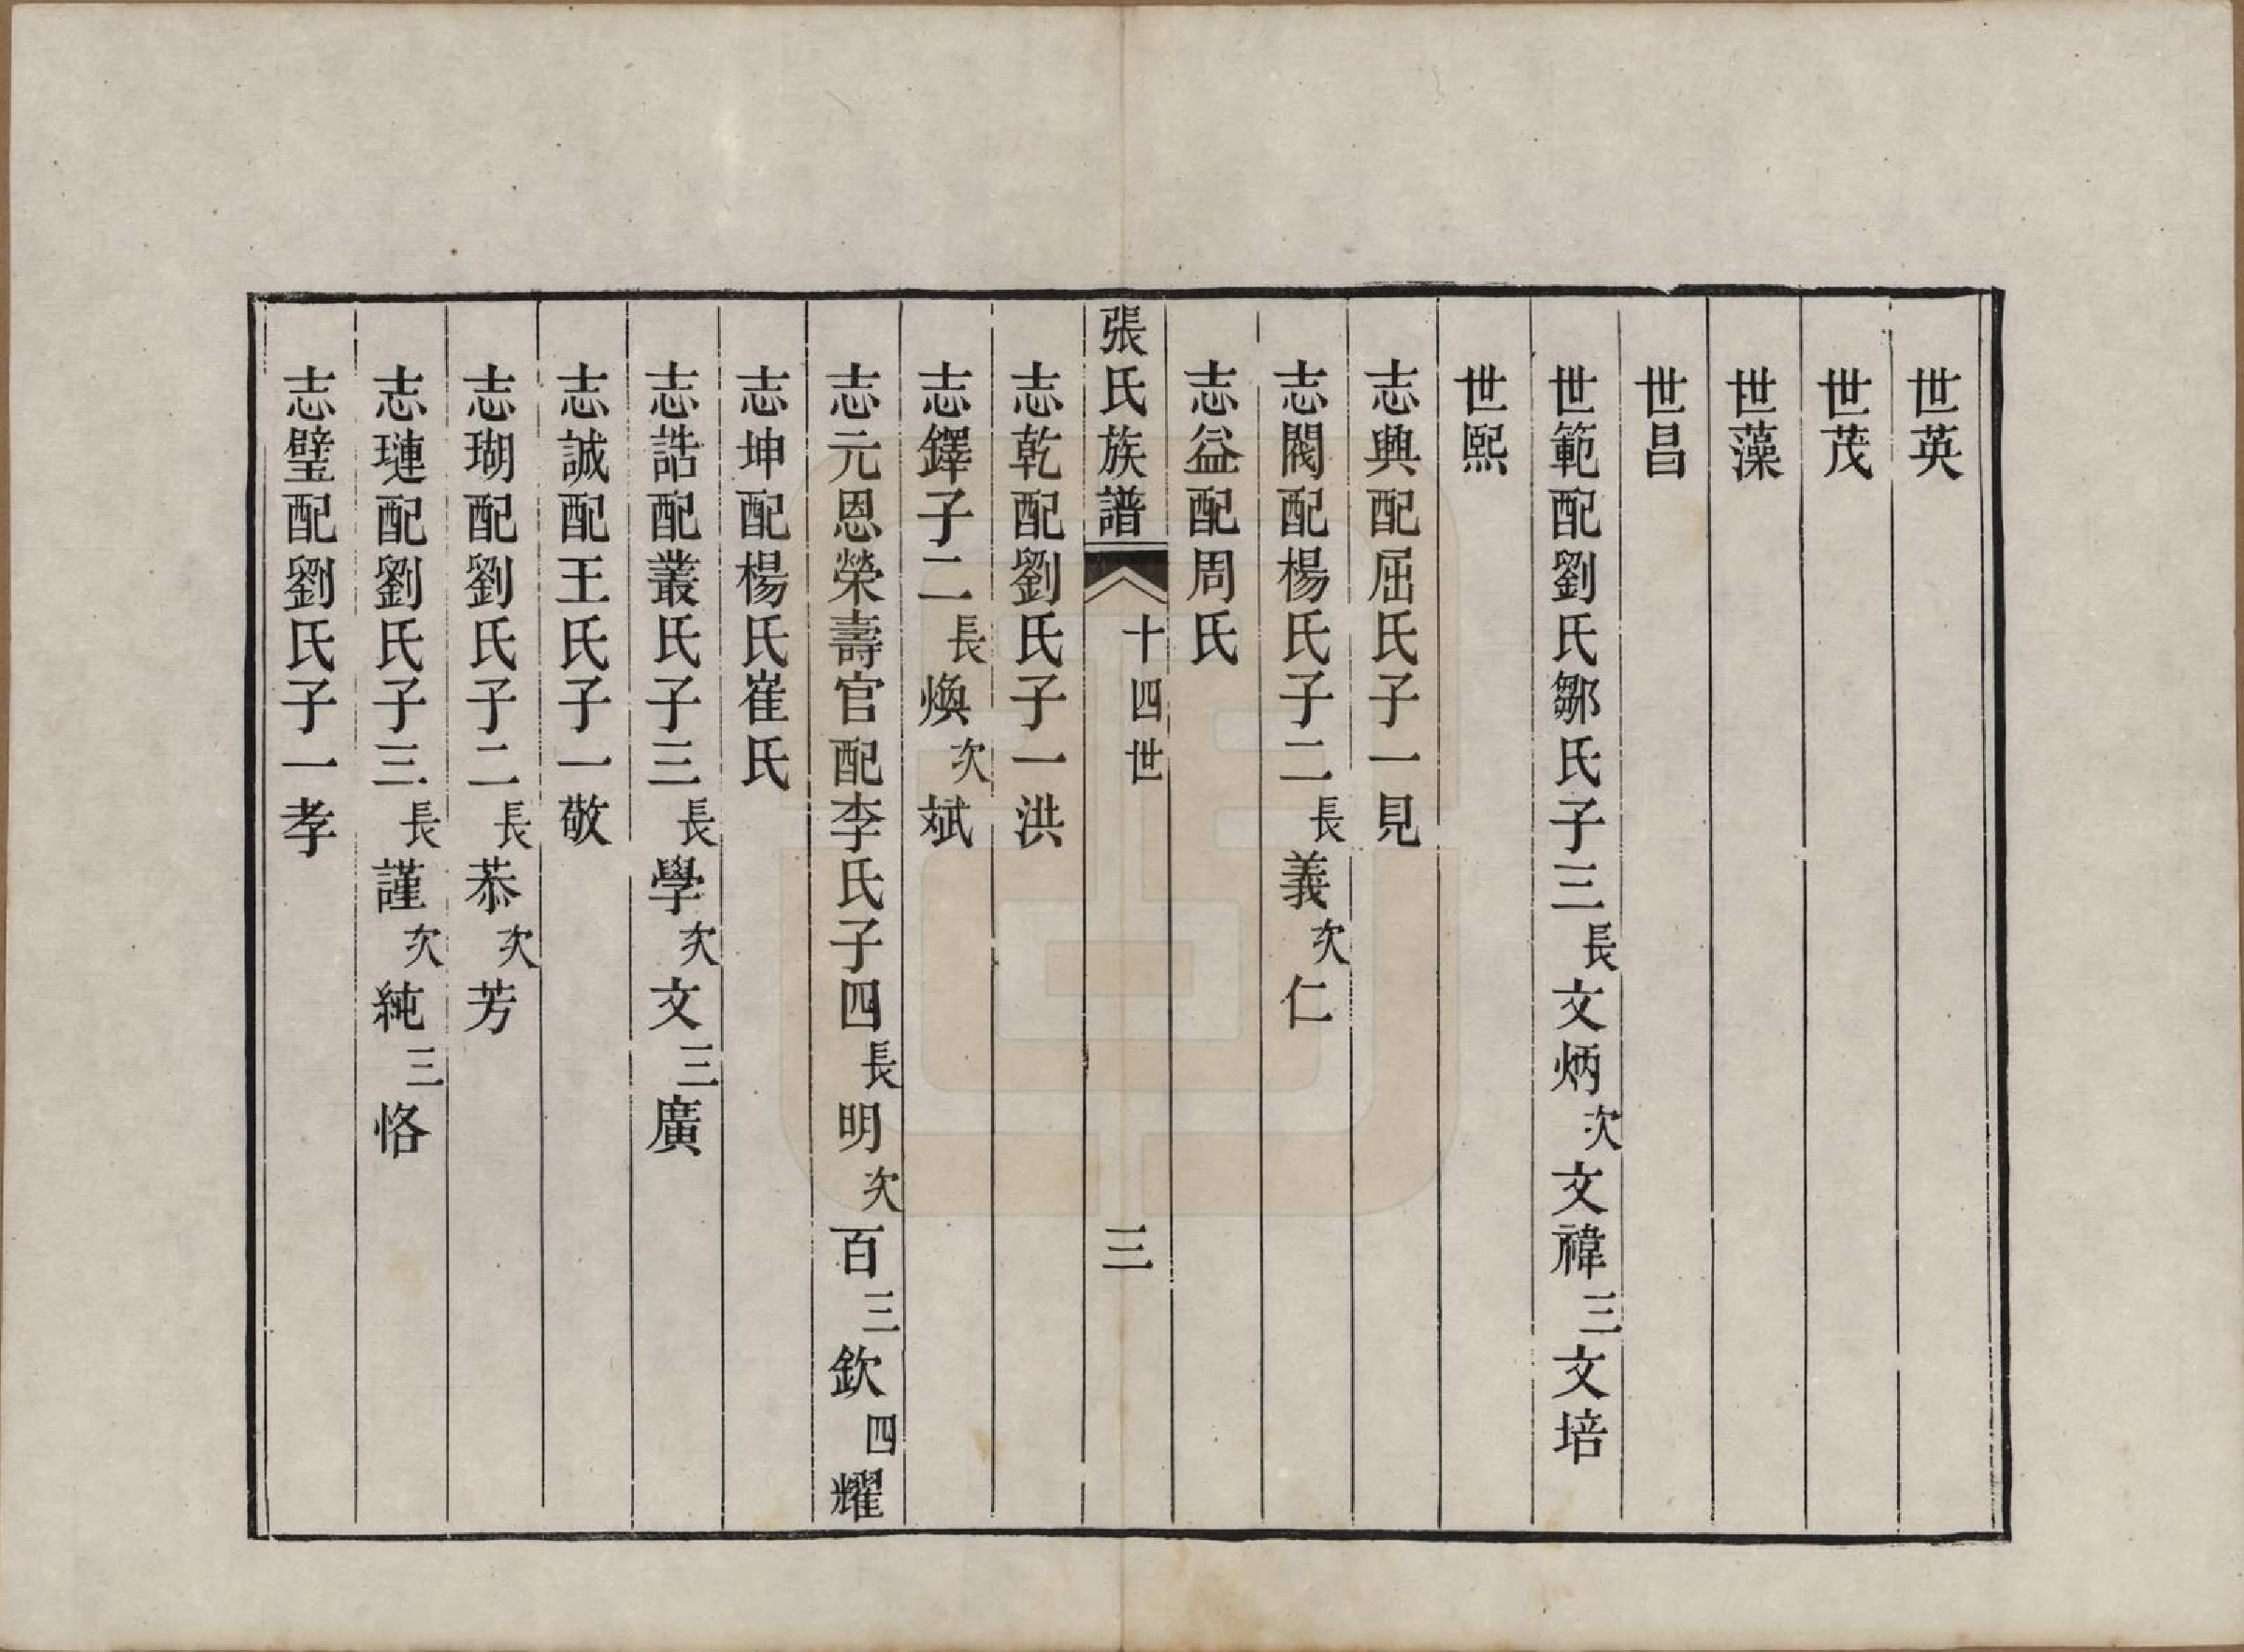 世英
世茂
世藻
世昌
世範配劉氏鄒氏子三長文炳次文禕三文培
世熙
志興配屈氏子一見
志閣配楊氏子二長義次仁
志益配周氏
張氏族譜 十四世 三
志乾配劉氏子一洪
志鐸子二長煥次斌
志元恩榮壽官配李氏子四長明次百三欽四耀
志坤配楊氏崔氏
志誥配叢氏子三長學次文三廣
志誠配王氏子一敬
志瑚配劉氏子二長恭次芳
志璉配劉氏子三長謹次純三恪
志璧配劉氏子一孝